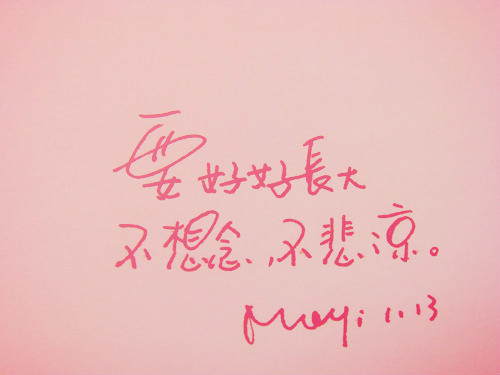 要好好長大
不想念,不悲涼。
Mayi 11.13